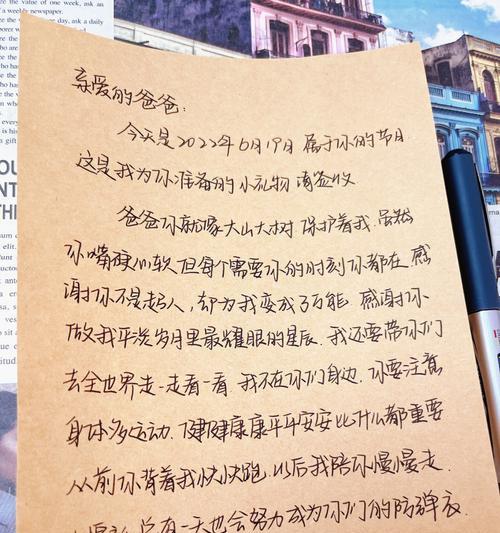 亲爱的爸爸：
今天是2022年6月19日 属于你的节日
这是我为你准备的小礼物 请签收
爸爸你就像大山大树 保护着我 虽然
你嘴硬心软 但每个需要你的时刻你都在 感
谢你不是超人，却为我变成了万能 感谢你
做我平淡岁月里最耀眼的星辰 我还要带你们
去全世界走一走看一看 我不在你们身边 你要注意
身体多运动 健健康康平平安安比什么都重要
从前你背着我快快跑 以后我陪你慢慢走
总有一天也会努力成为你们的防弹衣